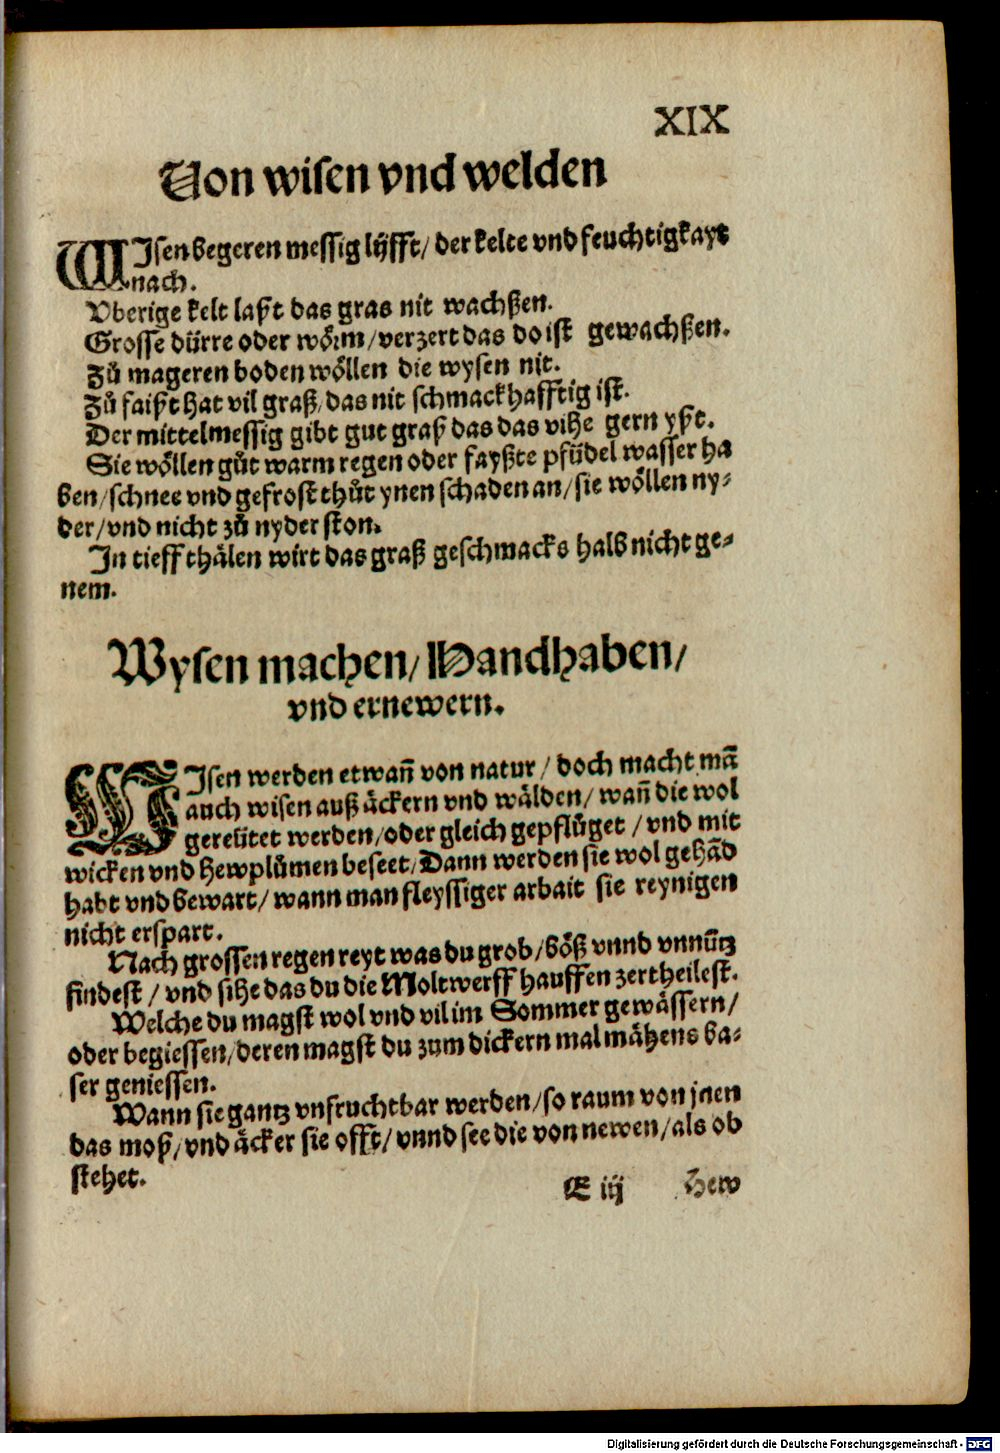 XIX
Von wisen vnd welden
WIsen begeren messig lüfft/ der kelte vnd feuchtigkayt
nach.
Vberige kelt laßt das gras nit wachßen.
Grosse dürre oder wörm/verzert das do ist gewachßen.
Zů mageren boden wöllen die wysen nit.
Zů faißt hat vil graß/das nit schmackhafftig ist.
Der mittelmessig gibt gut graß das das vihe gern yßt.
Sie wöllen gůt warm regen oder fayßte pfüdel wasser ha
ben/schnee vnd gefrost thůt ynen schaden an/sie wöllen ny⸗
der/vnd nicht zů nyder ston.
In tieff thälen wirt das graß geschmacks halb nicht ge⸗
nem.
Wysen machen/ Handhaben/
vnd ernewern.
WIsen werden etwañ von natur / doch macht mã
auch wisen auß äckern vnd wälden/ wañ die wol
gereütet werden/oder gleich gepflůget / vnd mit
wicken vnd hewplůmen beseet/Dann werden sie wol gehãd
habt vnd bewart/ wann man fleyssiger arbait sie reynigen
nicht erspart.
Nach grossen regen reyt was du grob/böß vnnd vnnütz
findest / vnd sihe das du die Moltwerff hauffen zertheilest.
Welche du magst wol vnd vil im Sommer gewässern/
oder begiessen/deren magst du zum dickern mal mähens ba⸗
ser geniessen.
Wann sie gantz vnfruchtbar werden/so raum von jnen
das moß/vnd äcker sie offt/ vnnd see die von newen/als ob
stehet.
E iij Hew
Digitalisierung gefördert durch die Deutsche Forschungsgemeinschaft - DFG